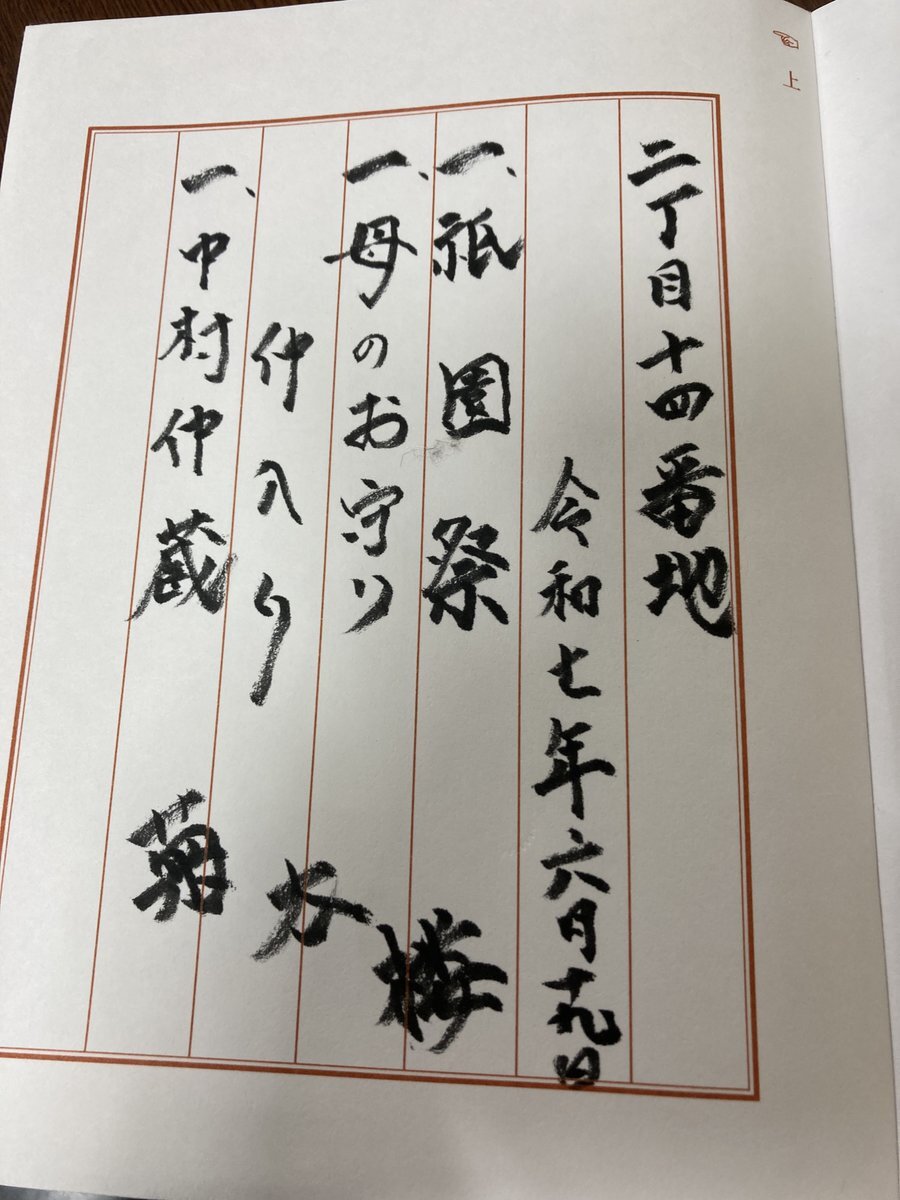 上
二丁目十四番地
令和七年六月十九日
一、祇園祭 梅
一、母のお守り
仲入り
一、中村仲蔵 菊